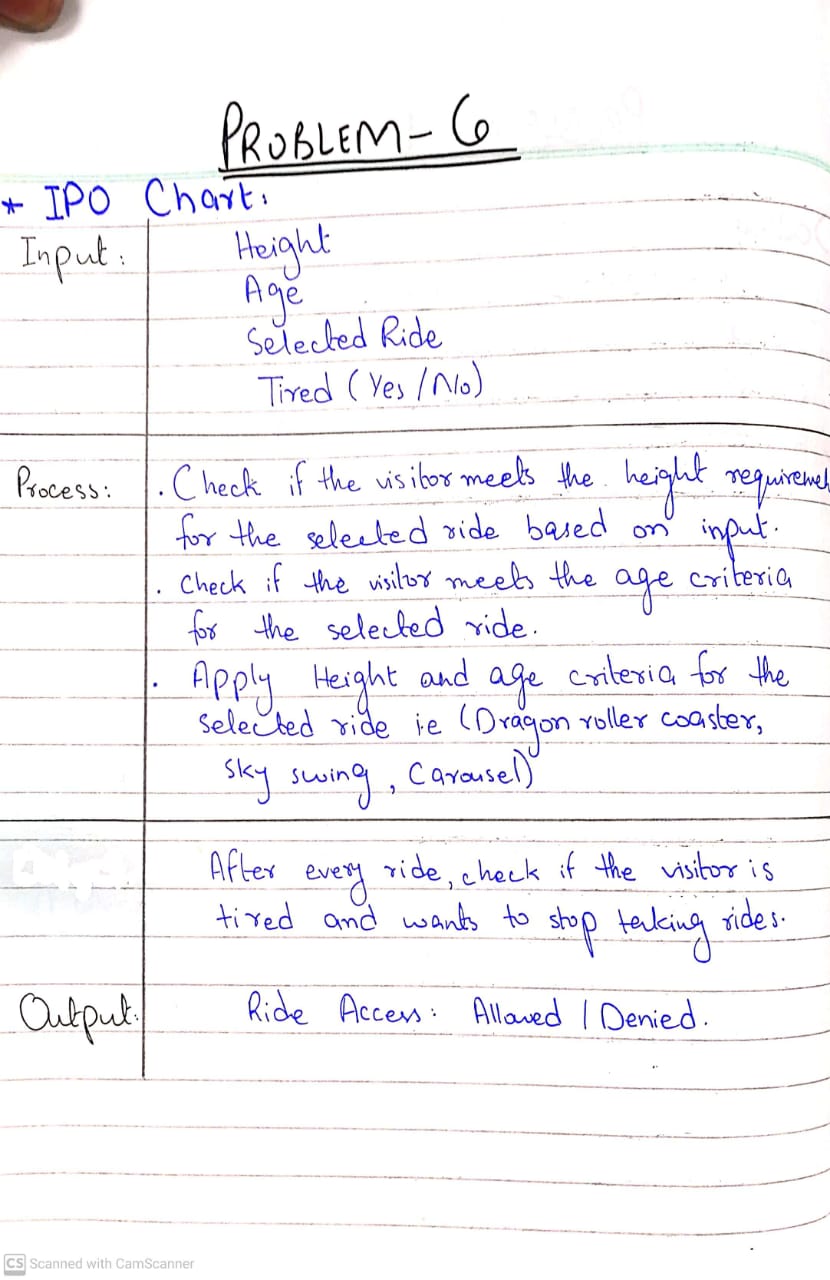 PROBLEM-6
* IPO Chart:
Input:
Height
Age
Selected Ride
Tired (Yes/No)
Process:
. Check if the visitor meets the height requiremen
for the selected ride based on input.
. Check if the visitor meets the age criteria
for the selected ride.
. Apply Height and age criteria for the
selected ride i.e (Dragon roller coaster,
sky swing, Carousel)
After every ride, check if the visitor is
tired and wants to stop taking rides.
Output:
Ride Access: Allowed / Denied.
CS Scanned with CamScanner